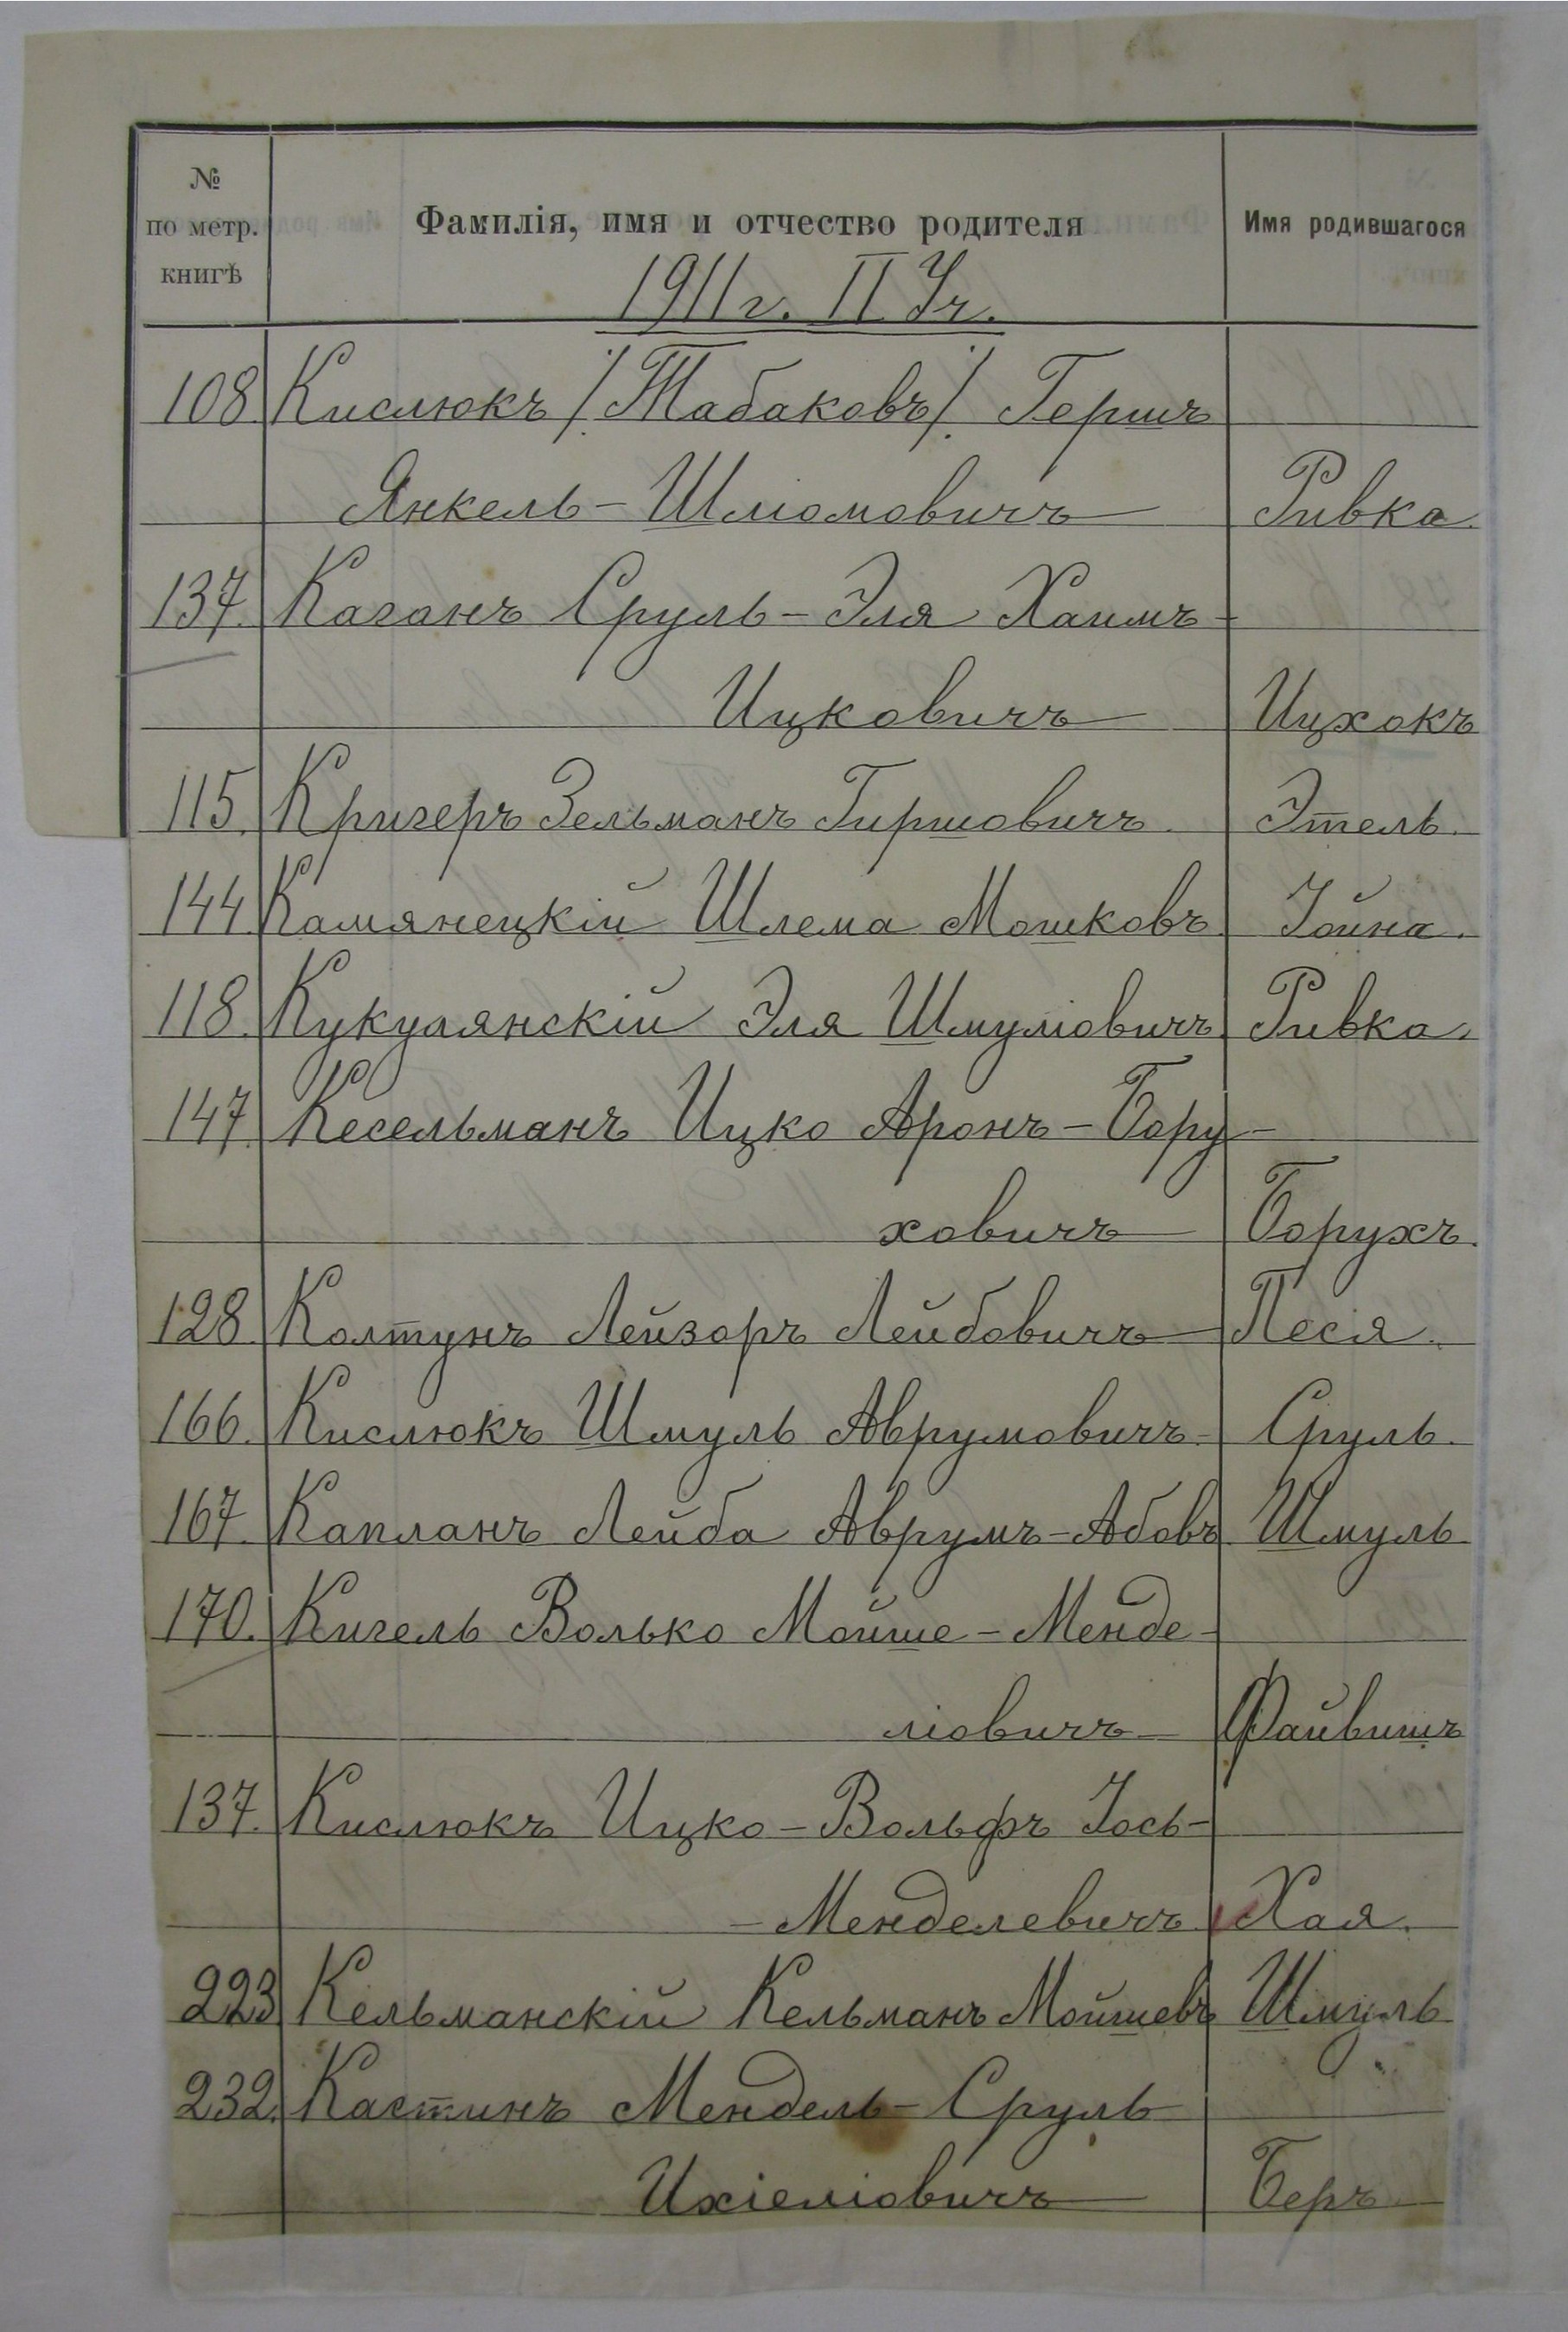 №
по метр.
книгѣ
Фамилія, имя и отчество родителя
Имя родившагося
1911 г. II Уч.
108 Кислюкъ /Табаковъ/ Гершъ
Янкель-Шліомовичъ Ривка.
137. Каганъ Сруль-Эля Хаимъ-
Ицковичъ Ицхокъ
115. Кригеръ Зельманъ Гиршовичъ. Этель.
144. Камянецкій Шлема Мошковъ Іойна.
118. Кукулянскій Эля Шмуліовичъ. Ривка.
147. Кесельманъ Ицко Аронъ-Бору-
ховичъ Борухъ.
128. Колтунъ Лейзоръ Лейбовичъ Песя.
166. Кислюкъ Шмуль Аврумовичъ. Сруль.
167. Капланъ Лейба Аврумъ-Абовъ Шмуль
170. Кигель Волько Мойше-Менде-
ліовичъ Файвишъ
137. Кислюкъ Ицко-Вольфъ Іось-
-Менделевичъ Хая.
223. Кельманскій Кельманъ Мойшевъ Шмуль
232. Кастинъ Мендель-Сруль
Ихіеліовичъ Беръ